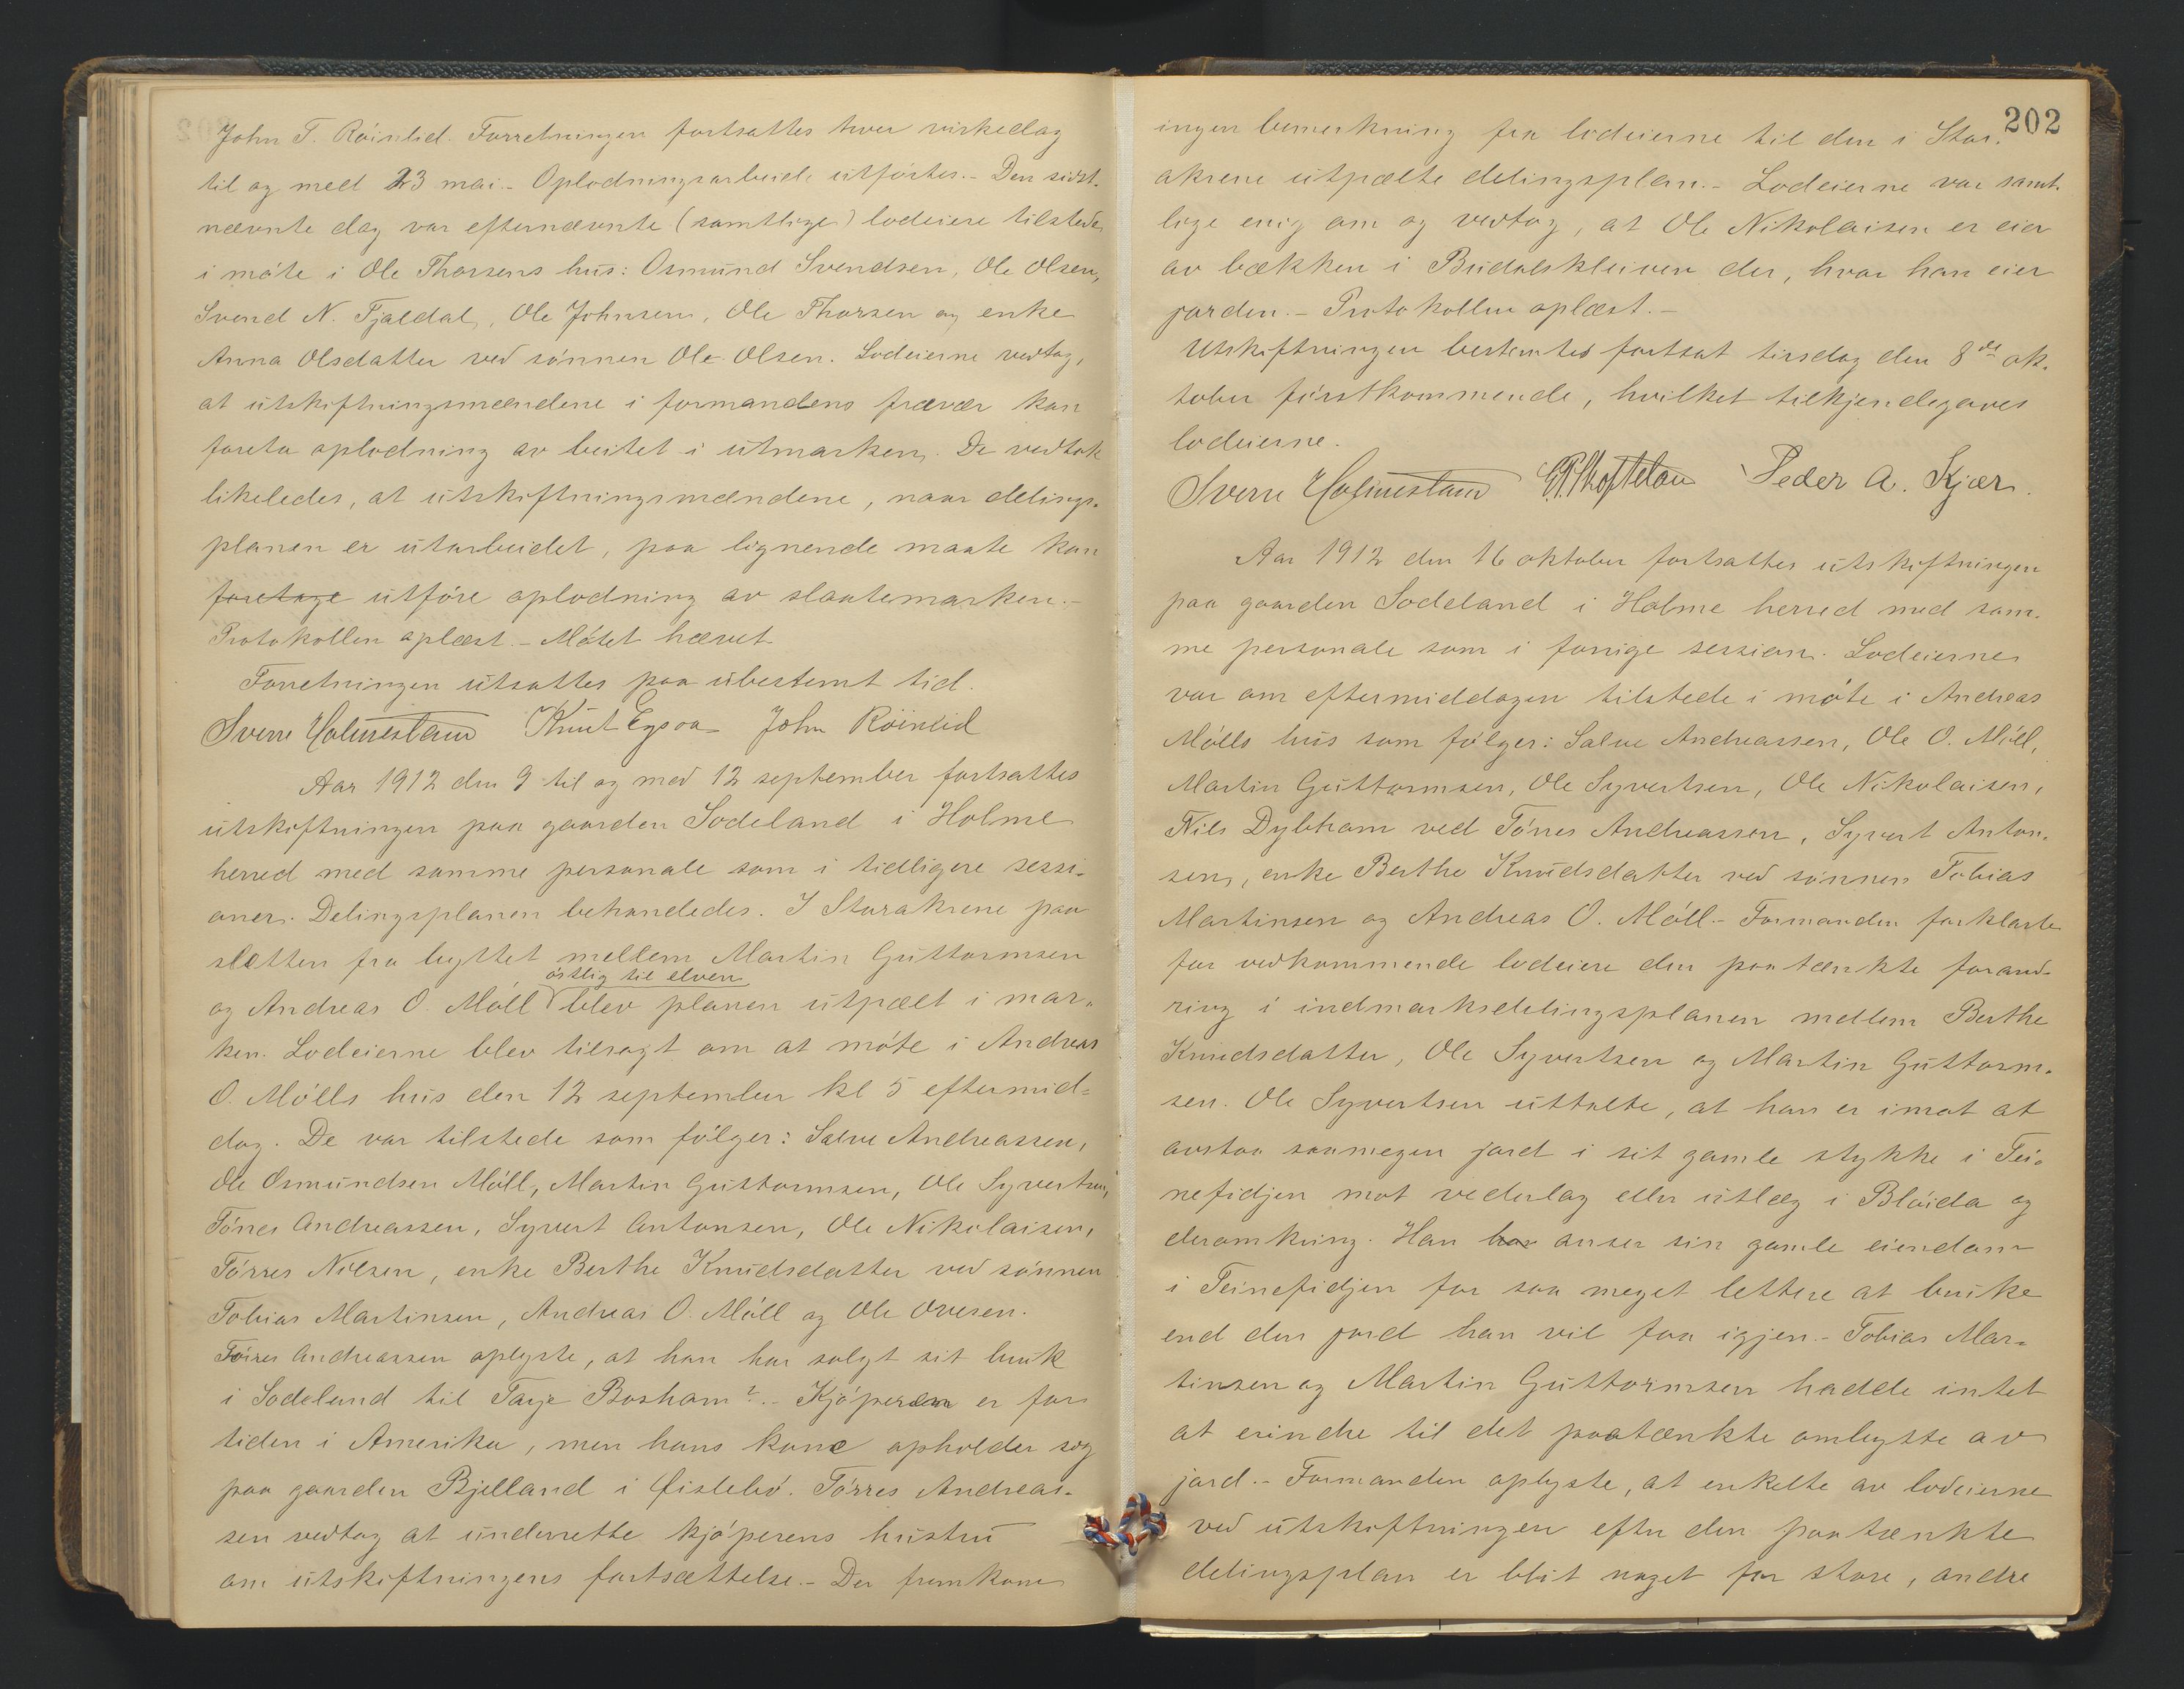 John T. Röinlid. Forretningen fortsattes hver virkedag
til og med 23 mai. - Oplodningsarbeide utförtes. - Den sidst-
nævnte dag var efternævnte (samtlige) lodeiere tilstede
i möte i Ole Thorsens hus: Osmund Svendsen, Ole Olsen,
Svend N. Fjældal, Ole Johnsen, Ole Thorsen og enke
Anna Olsdatter ved sönnen Ole Olsen. Lodeierne vedtog,
at utskiftningsmændene i formandens fravær kan
foreta oplodning av beitet i utmarken. De vedtok
likeledes, at utskiftningsmændene, naar delings-
planen er utarbeidet, paa lignende maate kan
foretage utföre oplodning av slaattemarken. -
Protokollen oplæst. - Mötet hævet.
Forretningen utsattes paa ubestemt tid.
Sverre Holmestam Knut Egsaa John Röinlid
Aar 1912 den 9 til og med 12 september fortsattes
utskiftningen paa gaarden Sodeland i Holme
herred med samme personale som i tidligere sessi-
oner. Delingsplanen behandledes. I Storakrene paa
sletten fra byttet mellem Martin Guttormsen
östlig til elven
og Andreas O. Möll blev planen utpælt i mar-
ken. Lodeierne blev tilsagt om at möte i Andreas
O. Mölls hus den 12 september kl 5 eftermid-
dag. De var tilstede som fölger: Salve Andreassen,
Ole Osmundsen Möll, Martin Guttormsen, Ole Syvertsen,
Tönnes Andreassen, Syvert Antonsen, Ole Nikolaisen,
Törres Nilsen, enke Berthe Knudsdatter ved sönnen
Tobias Martinsen, Andreas O. Möll og Ole Ovesen.
Törres Andreassen oplyste, at han har solgt sit bruk
i Sodeland til Tarje Bosham?. - Kjöperen er for
tiden i Amerika, men hans kone opholder sig
paa gaarden Bjelland i Öislebö. Törres Andreas-
sen vedtog at underrette kjöperens hustru
om utskiftningens fortsættelse. - Der fremkom
202
ingen bemerkning fra lodeierne til den i Stor-
akrene utpælte delingsplan. - Lodeierne var samt-
lige enig om og vedtog, at Ole Nikolaisen er eier
av bækken i Budalskleiven der, hvor han eier
jorden. - Protokollen oplæst. -
Utskiftningen bestemtes fortsat tirsdag den 8de ok-
tober förstkommende, hvilket tilkjendegaves
lodeierne.
Sverre Holmestam Peder A. Kjær.
Aar 1912 den 16 oktober fortsattes utskiftningen
paa gaarden Sodeland i Holme herred med sam-
me personale som i forrige session. Lodeierne
var om eftermiddagen tilstede i möte i Andreas
Mölls hus som fölger: Salve Andreassen, Ole O. Möll,
Martin Guttormsen, Ole Syvertsen, Ole Nikolaisen,
Nils Dybham ved Tönnes Andreassen, Syvert Anton-
sen, enke Berthe Knudsdatter ved sönnen Tobias
Martinsen og Andreas O. Möll. - Formanden forklarte
for vedkommende lodeiere den paatænkte forand-
ring i indmarksdelingsplanen mellem Berthe
Knudsdatter, Ole Syvertsen og Martin Guttorm-
sen. Ole Syvertsen uttalte, at han er imot at
avstaa saamegen jord i sit gamle stykke i Tei-
nefidjen mot vederlag eller utlæg i Blöida og
deromkring. Han har anser sin gamle eiendom
i Teinefidjen for saa meget lettere at bruke
end den jord han vil faa igjen. - Tobias Mar-
tinsen og Martin Guttormsen hadde intet
at erindre til det paatænkte ombytte av
jord. - Formanden oplyste, at enkelte av lodeierne
ved utskiftningen efter den paatænkte
delingsplan er blit noget for store, andre